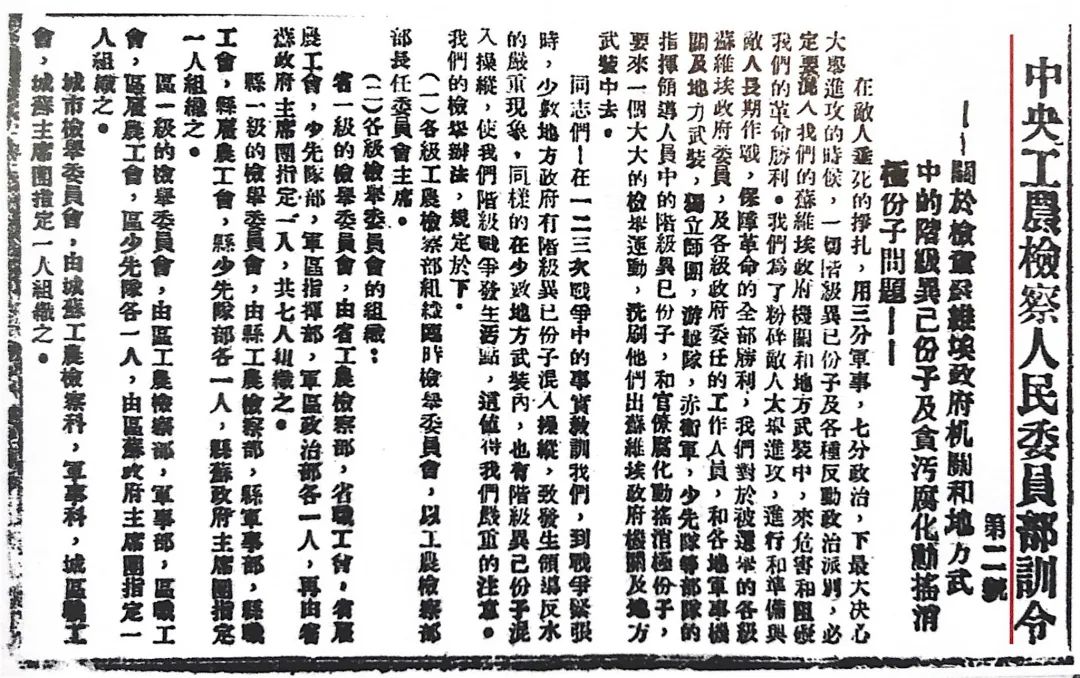 中央工農檢察人民委員部訓令
第二號
——關於檢查蘇維埃政府机關和地方武
中的階級異己份子及貪汚腐化動搖消
極份子問題——
在敵人垂死的掙扎，用三分軍事，七分政治，下最大决心
大舉進攻的時候，一切階級異己份子及各種反動政治派別，必
定要混入我們的蘇維埃政府機關和地方武裝中，來危害和阻礙
我們的革命勝利。我們爲了粉碎敵人大舉進攻，進行和準備與
敵人長期作戰，保障革命的全部勝利，我們對於被選舉的各級
蘇維埃政府委員，及各級政府委任的工作人員，和各地軍事機
關及地方武裝，獨立師團，游擊隊，赤衛軍，少先隊等部隊的
指揮領導人員中的階級異已份子，和官僚腐化動搖消極份子，
要來一個大大的檢舉運動，洗刷他們出蘇維埃政府機關及地方
武裝中去。
同志們！在一二三次戰爭中的事實敎訓我們，到戰爭緊張
時，少數地方政府有階級異已份子混入操縱，致發生領導反水
的嚴重現象，同樣的在少數地方武裝內，也有階級異己份子混
入操縱，使我們階級戰爭發生活點，這值得我們嚴重的注意。
我們的檢舉辦法，規定於下。
（一）各級工農檢察部組織臨時檢舉委員會，以工農檢察部
部長任委員會主席。
（二）各級檢舉委員會的組織：
省一級的檢舉委員會，由省工農檢察部，省職工會，省雇
農工會，少先隊部，軍區指揮部，軍區政治部各一人，再由省
蘇政府主席團指定一人，共七人組織之。
縣一級的檢舉委員會，由縣工農檢察部，縣軍事部，縣職
工會，縣雇農工會，縣少先隊部各一人，縣蘇政府主席團指定
一人組織之。
區一級的檢舉委員會，由區工農檢察部，軍事部，區職工
會，區雇農工會，區少先隊各一人，由區蘇政府主席團指定一
人組織之。
城市檢舉委員會，由城蘇工農檢察科，軍事科，城區職工
會，城蘇主席團指定一人組織之。